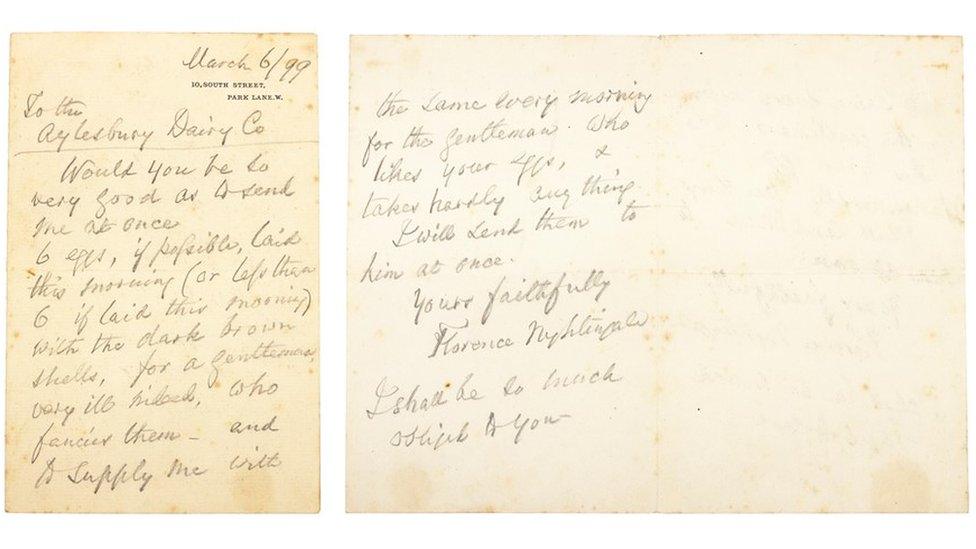 March 6/99
10, SOUTH STREET,
PARK LANE. W.
To the
Aylesbury Dairy Co
Would you be so
very good as to send
me at once
6 eggs, if possible, laid
this morning (or less than
6 if laid this morning)
with the dark brown
shells, for a gentleman,
very ill indeed, who
fancies them – and
to supply me with
the same every morning
for the gentleman. Who
likes your eggs, &
takes hardly any thing.
I will send them to
him at once.
Yours faithfully
Florence Nightingale
I shall be so much
obliged to you